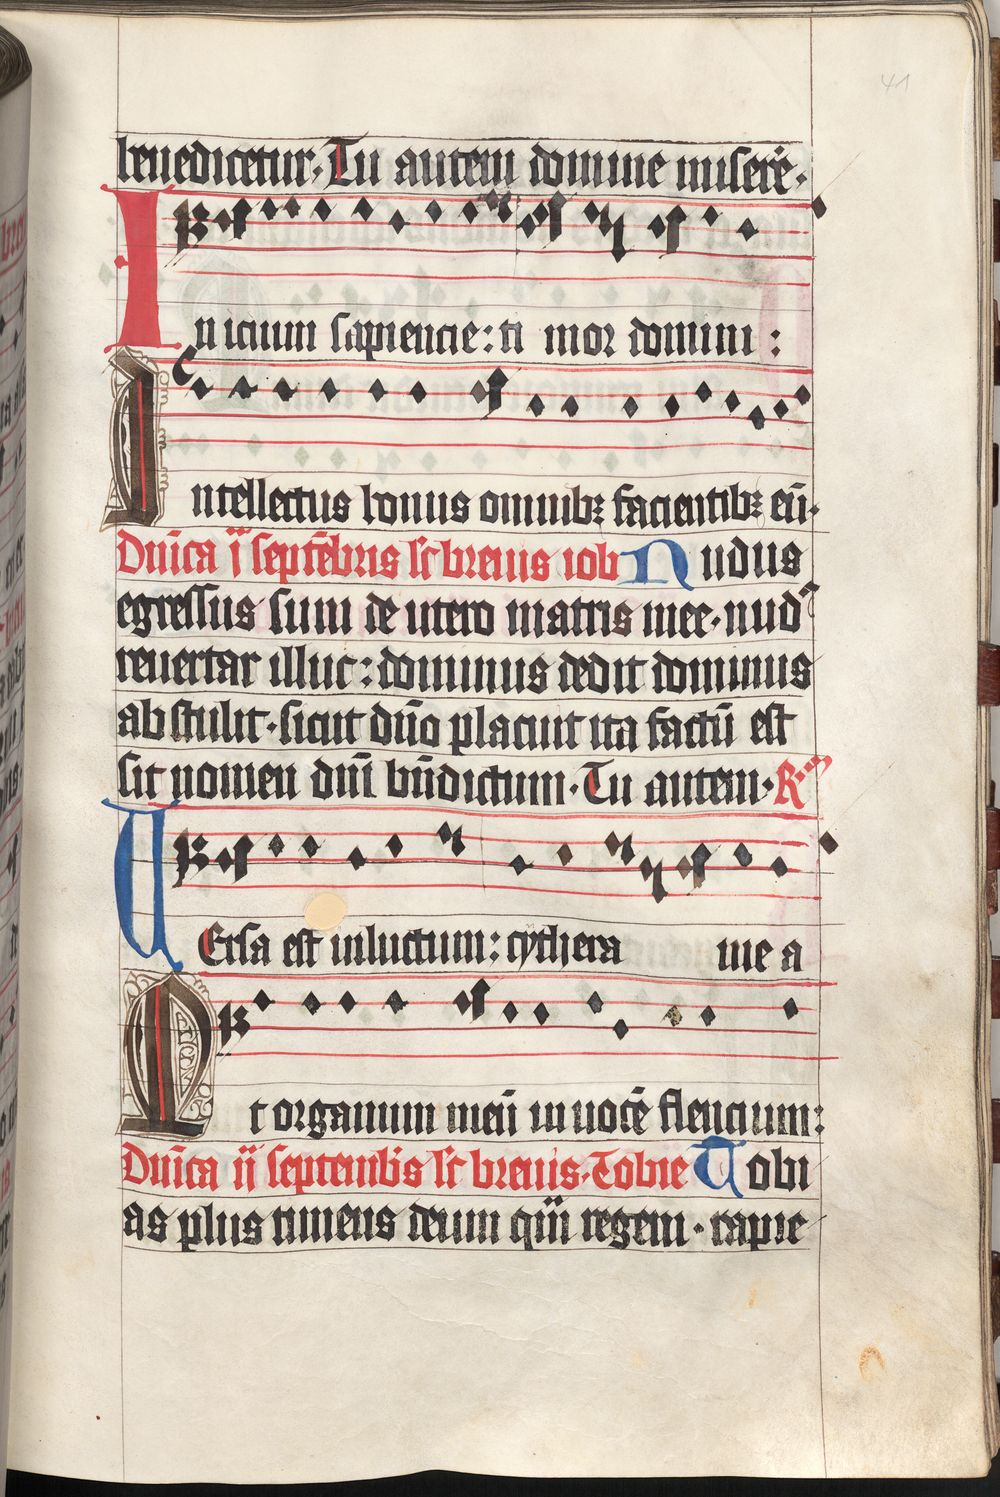 41
benedicetur. Tu autem domine miserē.
Inicium sapiencie: ti mor domini:
Intellectus bonus omnibꝫ facientibꝫ eū.
Dn̄ica j septēbris sc̄ breuis iob Nudus
egressus sum de utero matris mee. nudꝰ
reuertar illuc: dominus dedit dominus
abstulit. sicut dn̄o placuit ita factū est
sit nomen dn̄i bn̄dictum. Tu autem. R
UErsa est inluctum: cythera me a
Et organum meū in uocē flencium:
Dn̄ica ij septembis sc̄ breuis. Tobie Tobi
as plus timens deum qm̄ regem. rapie